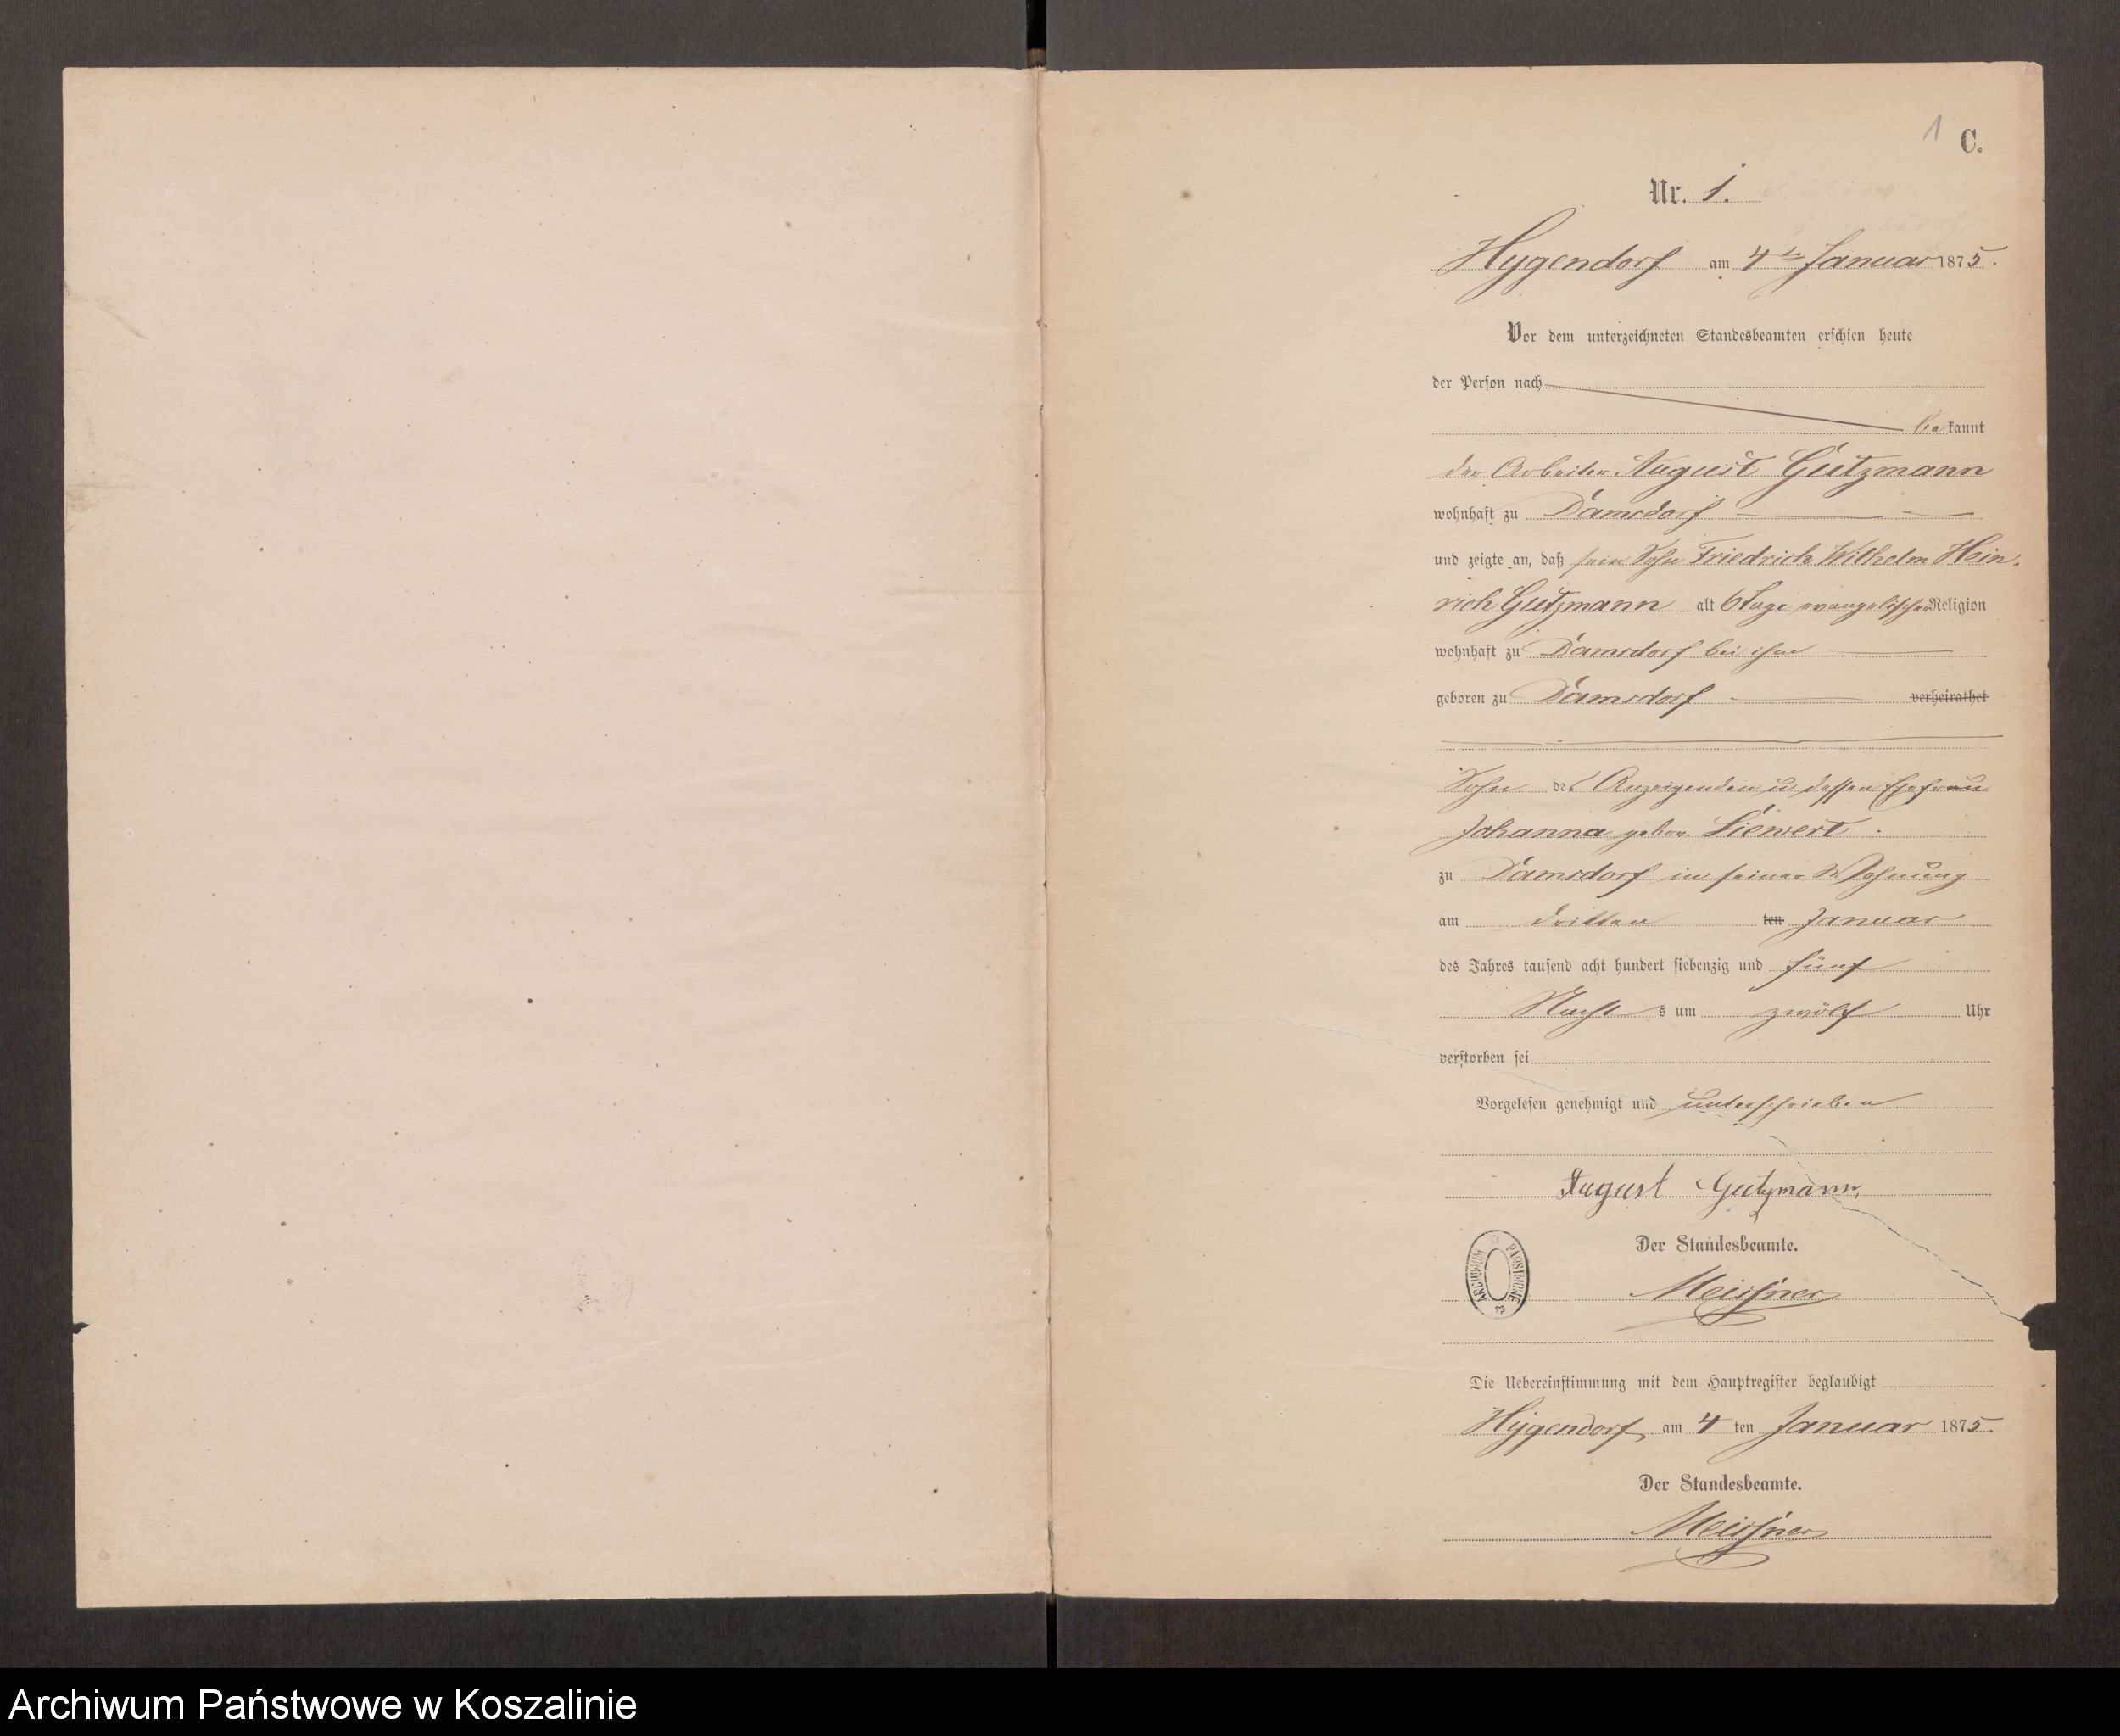 1 C.
Nr. 1.
Hygendorf am 4ten Januar 1875.
Vor dem unterzeichneten Standesbeamten erschien heute
der Person nach
bekannt
der Arbeiter August Gützmann
wohnhaft zu Damsdorf
und zeigte an, daß sein Sohn Friedrich Wilhelm Hein-
rich Gützmann alt 6 Tage evangelischer Religion
wohnhaft zu Damsdorf bei ihm
geboren zu Damsdorf verheirathet
Sohn des Anzeigenden u dessen Ehefrau
Johanna gebor. Siewert.
zu Damsdorf in seiner Wohnung
am dritten ten Januar
des Jahres tausend acht hundert siebenzig und fünf
Nacht s um zwölf Uhr
verstorben sei
Vorgelesen genehmigt und unterschrieben
August Gutzmann
Der Standesbeamte.
Meissner
ARCHIWUM PAŃSTWOWE
Die Uebereinstimmung mit dem Hauptregister beglaubigt
Hygendorf am 4 ten Januar 1875.
Der Standesbeamte.
Meissner
Archiwum Państwowe w Koszalinie